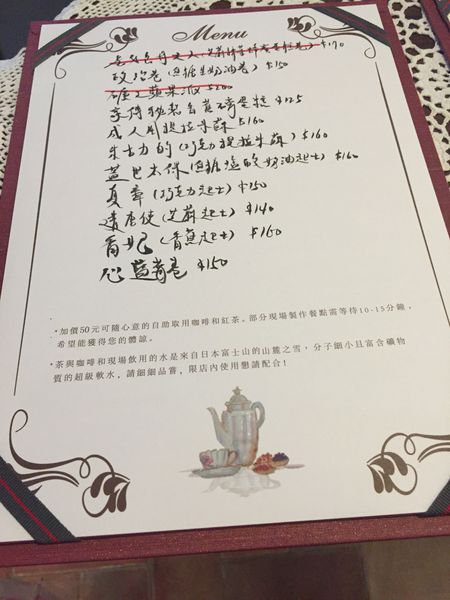 Menu
$190
政治卷(焦糖生奶油卷) $150
蘋果派 $200
亨得 蛋糕 $125
成人用提拉米蘇 $160
朱古力的(巧克力提拉米蘇) $160
蓋 木保(焦糖塩酸奶油起士) $160
夏章(巧克力起士) $150
達唐使(芝麻起士) $140
香妃(香蕉起士) $160
心藍莓卷 $150
*加價50元可隨心意的自助取用咖啡和紅茶。部分現場製作餐點需等待10-15分鐘,
希望能獲得您的體諒。
*茶與咖啡和現場飲用的水是來自日本富士山的山麓之雪,分子細小且富含礦物
質的超級軟水,請細細品嘗,限店內使用懇請配合!